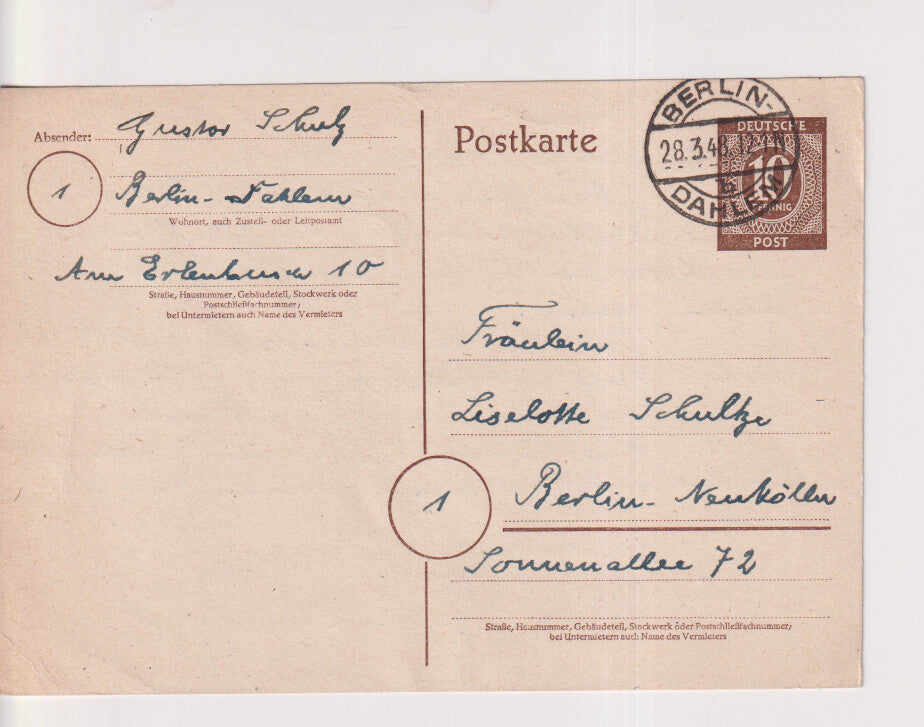 Absender: Gustav Schulz
1
Berlin-Dahlem
Wohnort, auch Zustell- oder Leitpostamt
Am Erlenbusch 10
Straße, Hausnummer, Gebäudeteil, Stockwerk oder
Postschließfachnummer;
bei Untermietern auch Name des Vermieters
Postkarte
BERLIN-
28.3.48
DAHLEM
DEUTSCHE
10
PFENNIG
POST
Fräulein
Liselotte Schultze
1
Berlin-Neukölln
Sonnenallee 72
Straße, Hausnummer, Gebäudeteil, Stockwerk oder Postschließfachnummer;
bei Untermietern auch Name des Vermieters